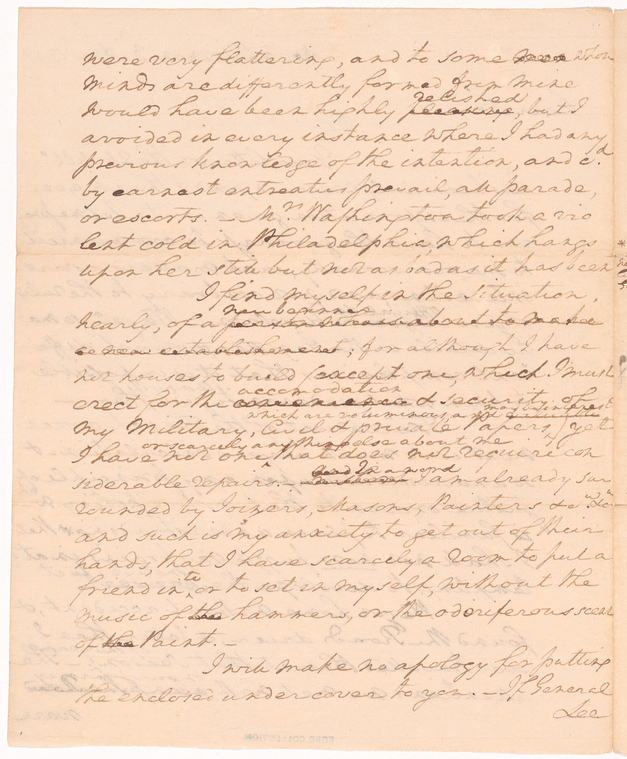 were very flattering, and to some men whose
minds are differently formed from mine
would have been highly pleasing relished, but I
avoided in every instance where I had any
previous knowledge of the intention, and cd.
by earnest entreaties prevail, all parade,
or escorts. — Mrs. Washington took a vio
lent cold in Philadelphia, which hangs
upon her still but not as bad as it has been
I find myself in the Situation,
new beginner
nearly, of a about to make
a new establishment; for although I have
not houses to build (except one, which I must
accomodation
erect for the convenience & security of
which are voluminous, and may be interest
my Military, Civil & private Papers, yet
or scarcely any thing else about me
I have not one that does not require con
and In a word
siderable repairs. — I am already sur
rounded by Joiners, Masons, Painters &ca. &ca.
and such is my anxiety to get out of their
hands, that I have scarcely a room to put a
friend into or to set in myself, without the
music of the hammers, or the odoriferous scent
of the Paint. —
I will make no apology for putting
the enclosed under cover to you. — If General
Lee